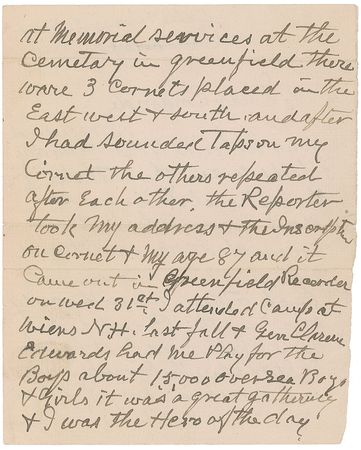 at Memorial services at the
Cemetary in greenfield there
ware 3 Cornets placed in the
East west & south. and after
I had sounded Taps on my
Cornet the others repeated
after Each other, the Reporter
took my address & the Inscription
on Cornet & my age 87 and it
Came out in Greenfield Recorder
on wed 31st, I attended Camp at
N.H. last fall & Gen Clarence
Edwards had me Play for the
Boys about 15000 oversea Boys
& Girls it was a great gathering
& I was the Hero of the day